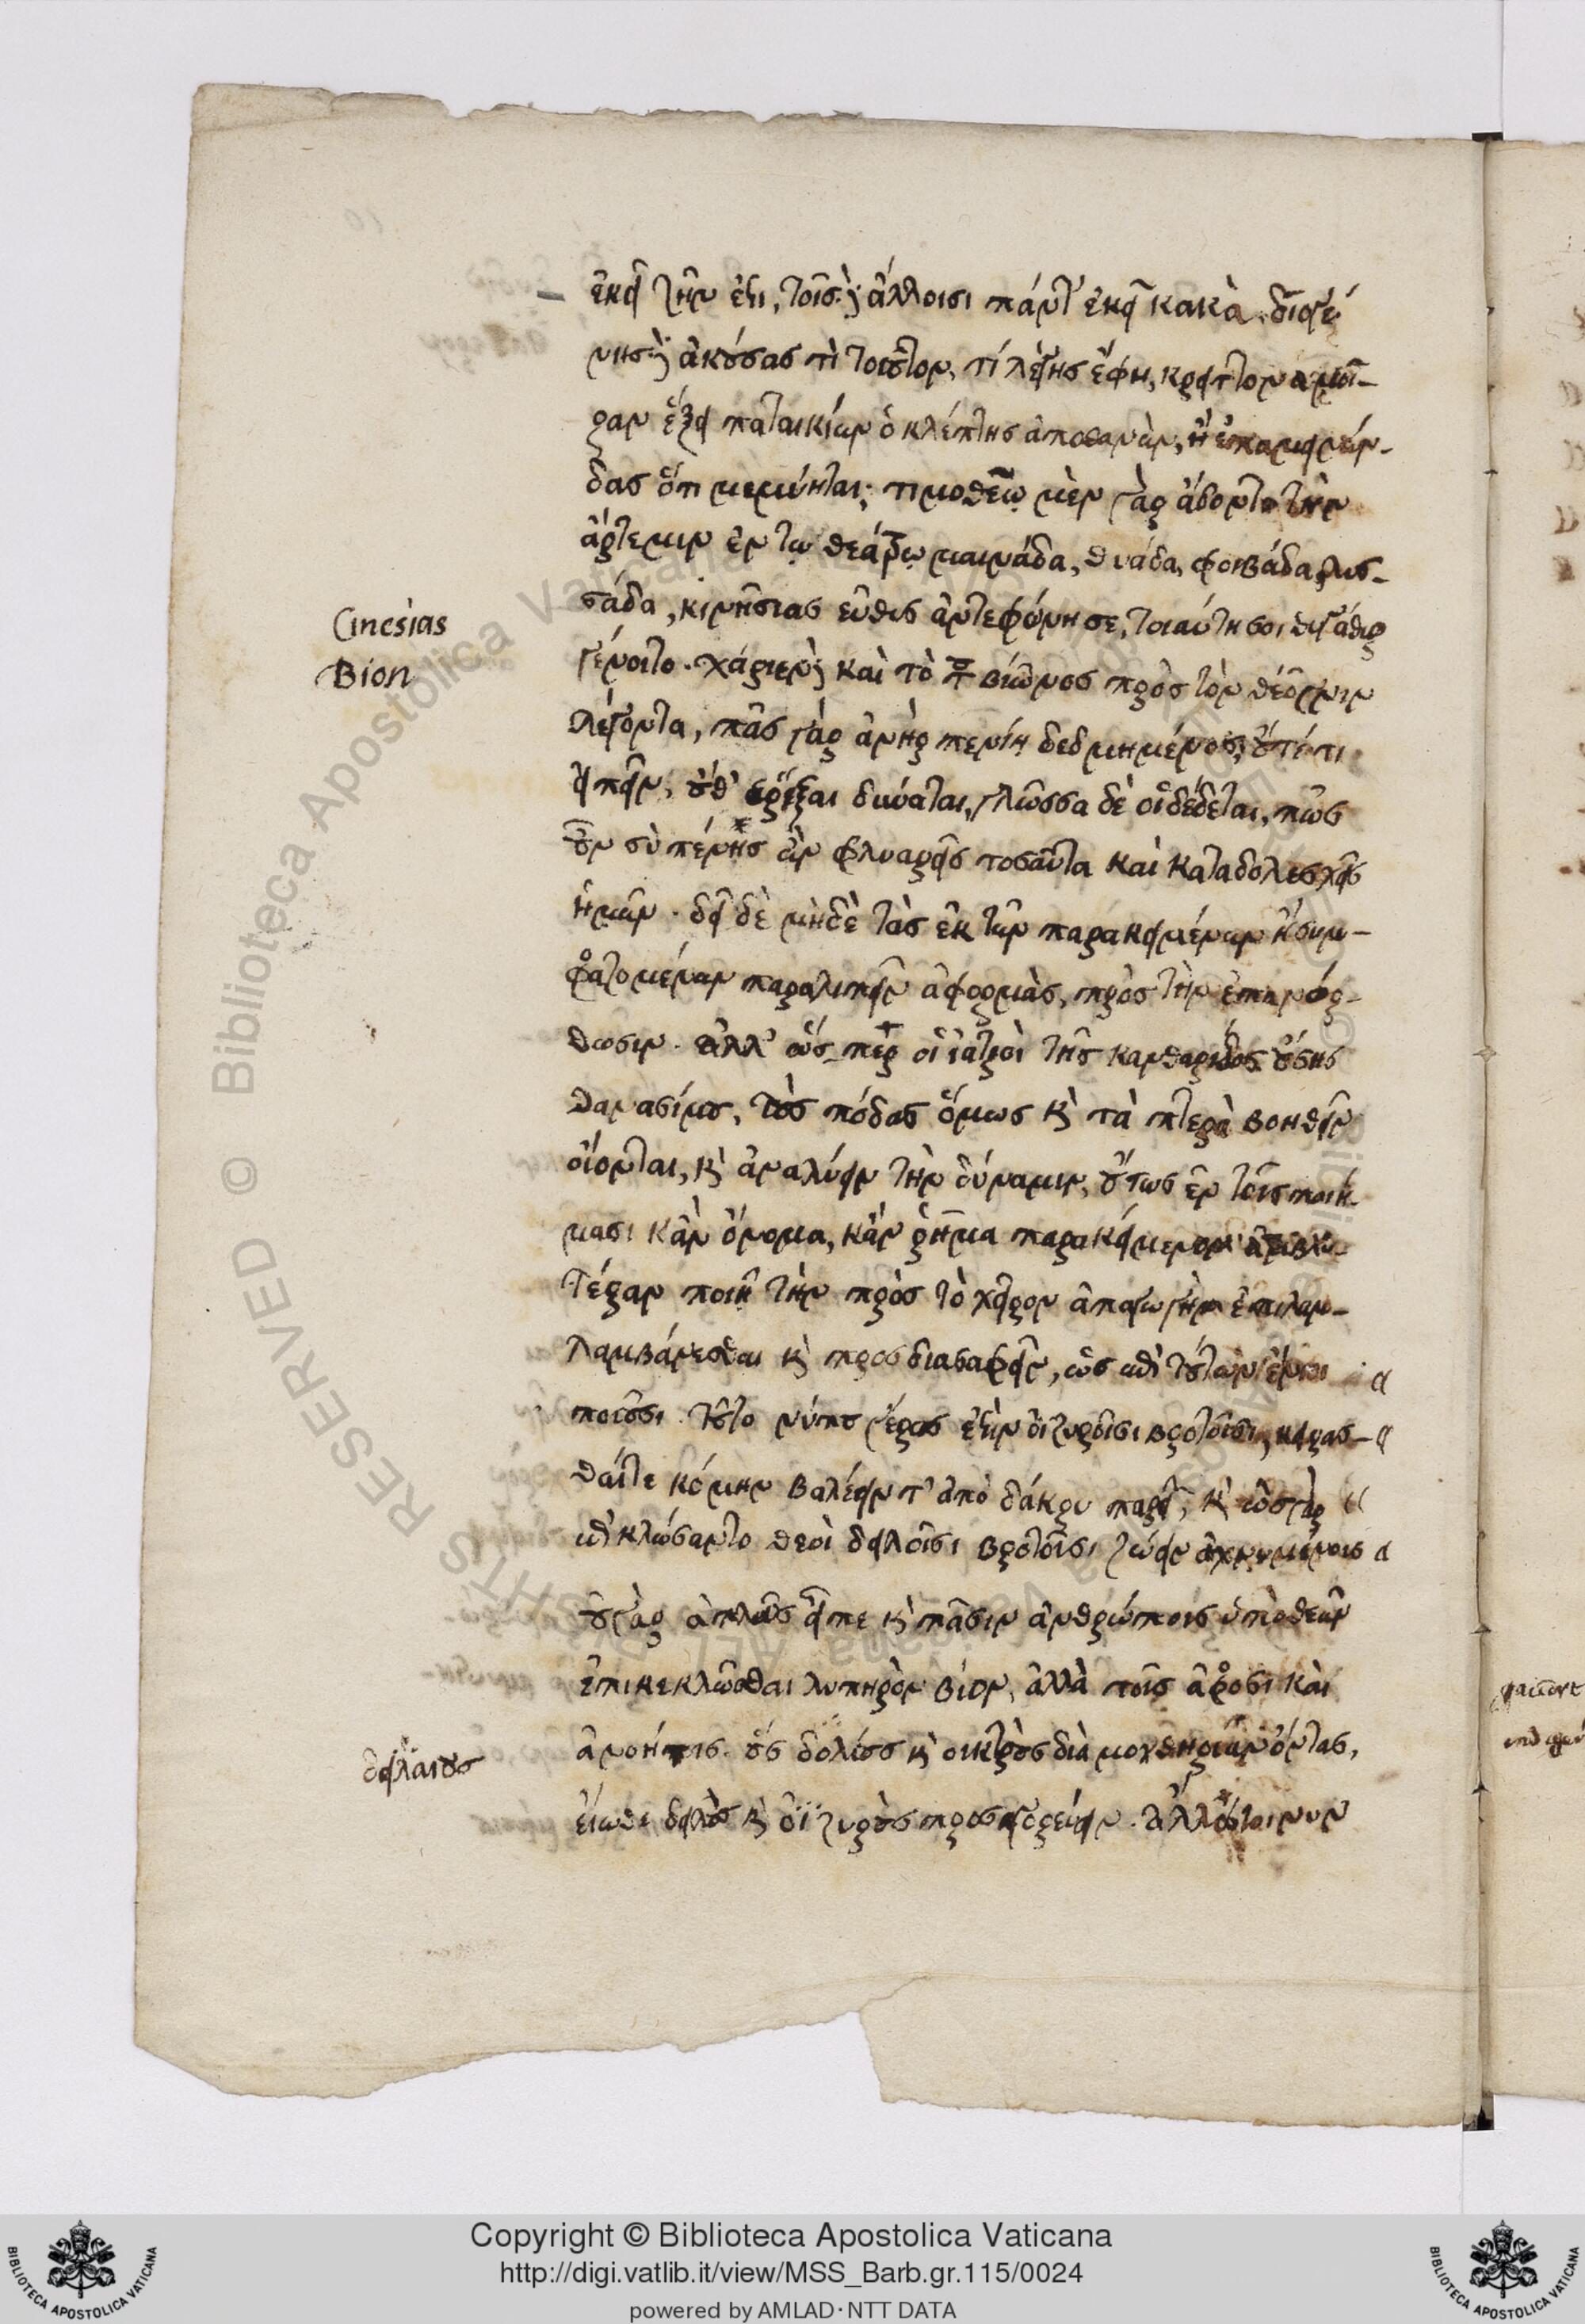 ἐκεῖ ζῆν ἐστι, τοῖς δ' ἄλλοισι πάντ' ἐκεῖ κακὰ. διογέ
νης δ' ἀκούσας τὶ τοιοῦτον, τί λέγης ἔφη, κρείττονα μοῖ-
ραν ἕξει παταικίων ὁ κλέπτης ἀποθανὼν, ἢ ἐπαμεινών-
δας ὅτι μεμύηται; τιμοθέῳ μὲν γὰρ ᾄδοντα τὴν
ἄρτεμιν ἐν τῳ θεάτρῳ μαινάδα, θυάδα, φοιβάδα, λυσ-
σάδα, κινησίας εὐθὺς ἀντεφώνησε, τοιαύτη σοι θυγάτηρ
Cinesias
γένοιτο. χάριεν δ καὶ τὸ τοῦ βίωνος πρὸς τὸν θέογνιν
Bion
λέγοντα, πᾶς γὰρ ἀνὴρ πενίῃ δεδμημένος, οὔτέ τι
εἰπεῖν, οὔθ' ἔρξαι δύναται, γλῶσσα δὲ οἱ δέδεται, πῶς
οὖν σὺ πένης ὢν φλυαρεῖς τοσαῦτα καὶ καταδολεσχεῖς
ἡμῶν. δεῖ δὲ μηδὲ τὰς ἐκ τῶν παρακειμένων ἢ συμ-
φραζομένων παραλιπεῖν ἀφορμὰς, πρὸς τὴν ἐπανόρ-
θωσιν. ἀλλ' ὥς περ οἱ ἰατροὶ τῆς κανθαρίδος οὔσης
θανασίμου, τοὺς πόδας ὅμως κ τὰ πτερὰ βοηθεῖν
οἴονται, κ ἀναλύειν τὴν δύναμιν, οὕτως ἐν τοῖς ποιή-
μασι κἂν ὄνομα, κἂν ῥῆμα παρακείμενον ἀμβλυ-
τέραν ποιῇ τὴν πρὸς τὸ χεῖρον ἀπαγωγὴν ἐπιλαμ-
λαμβάνεσθαι κ προσδιασαφεῖν, ὡς ἐπὶ τούτων ἔνιοι
ποιοῦσι. τοῦτο νύ που γέρας ἐστὶν ὀϊζυροῖσι βροτοῖσι, κείρασ-
θαί τε κόμην βαλέειν τ' ἀπὸ δάκρυ παρειῶν, κ ὣς γὰρ
ἐπεκλώσαντο θεοὶ δειλοῖσι βροτοῖσι ζώειν ἀχνυμένοις
οὐ γὰρ ἁπλῶς εἶπε κ πᾶσιν ἀνθρώποις ὑπὸ θεῶν
ἐπικεκλῶσθαι λυπηρὸν βίον, ἀλλὰ τοῖς ἄφροσι καὶ
ἀνοήτοις. οὓς δολίους κ οἰκτροὺς διὰ μοχθηρίαν ὄντας,
δειλαίους
εἴωθε δειλοὺς κ ὀϊζυροὺς προσαγορεύειν. ἄλλος τοίνυν